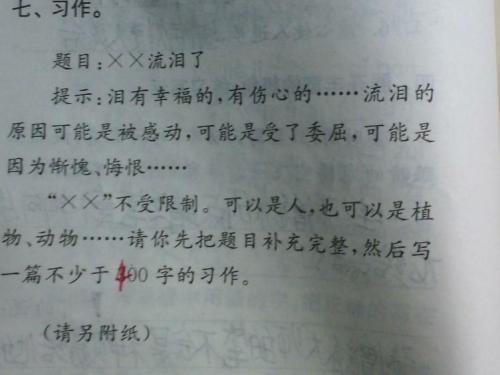 七、习作。
题目:××流泪了
提示:泪有幸福的,有伤心的……流泪的
原因可能是被感动,可能是受了委屈,可能是
因为惭愧、悔恨……
“××”不受限制。可以是人,也可以是植
物、动物……请你先把题目补充完整,然后写
一篇不少于400字的习作。
(请另附纸)